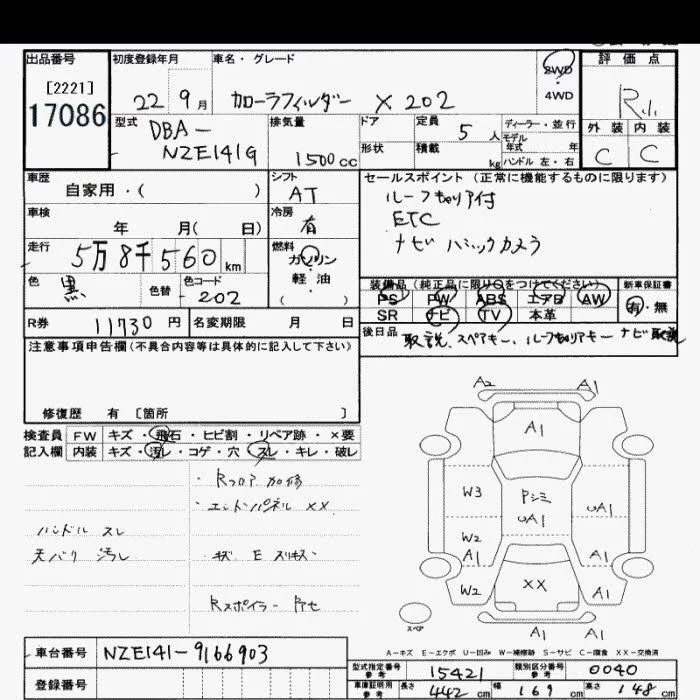 出品番号
[2221]
17086
初度登録年月
22 9月
車名・グレード
カローラフィルダー X 202
2WD
4WD
評価点
R小
外装 内装
C C
型式 DBA-
NZE141G
排気量
1500cc
ドア
形状
定員 5人
積載 kg
ディーラー・並行
モデル
年式 年
ハンドル 左・右
車歴
自家用・( )
シフト
AT
車検
年 月( 日)
冷房
有
走行
5万8千560km
燃料
ガソリン
軽油
( )
色
黒
色替
色コード
202
R券 11730円
名変期限 月 日
セールスポイント(正常に機能するものに限ります)
ETC
ナビ バックカメラ
装備品(純正品に限り○をつけてください)
新車保証書
PS PW ABS エアB AW
SR ナビ TV 本革
有・無
後日品 取説、スペアキー、ルーフキャリアキー ナビ取説
注意事項申告欄(不具合内容等は具体的に記入して下さい)
修復歴 有 [箇所 ]
検査員 FW キズ・飛石・ヒビ割・リペア跡・×要
記入欄 内装 キズ・汚レ・コゲ・穴・スレ・キレ・破レ
・Rフロア 加修
・エンドパネル XX
ハンドル スレ
天バリ 汚レ
キズ E スリキズ
Rスポイラー
A2 A1
A1
W3
Pシミ
UA1
UA1
W2
A1
A1
W2
XX
A1
スペア
A1 A1
A-キズ E-エクボ U-凹み W-補修跡 S-サビ C-腐食 XX-交換済
車台番号 NZE141-9166903
登録番号
型式指定番号
参考
15421
類別区分番号
参考
0040
車庫証明用
参考
長さ 442cm 幅 169cm 高さ 148cm